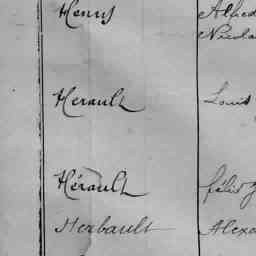 Henry Alfred
Nicola
Herault Louis
Hérault félix
Herbault Alexa